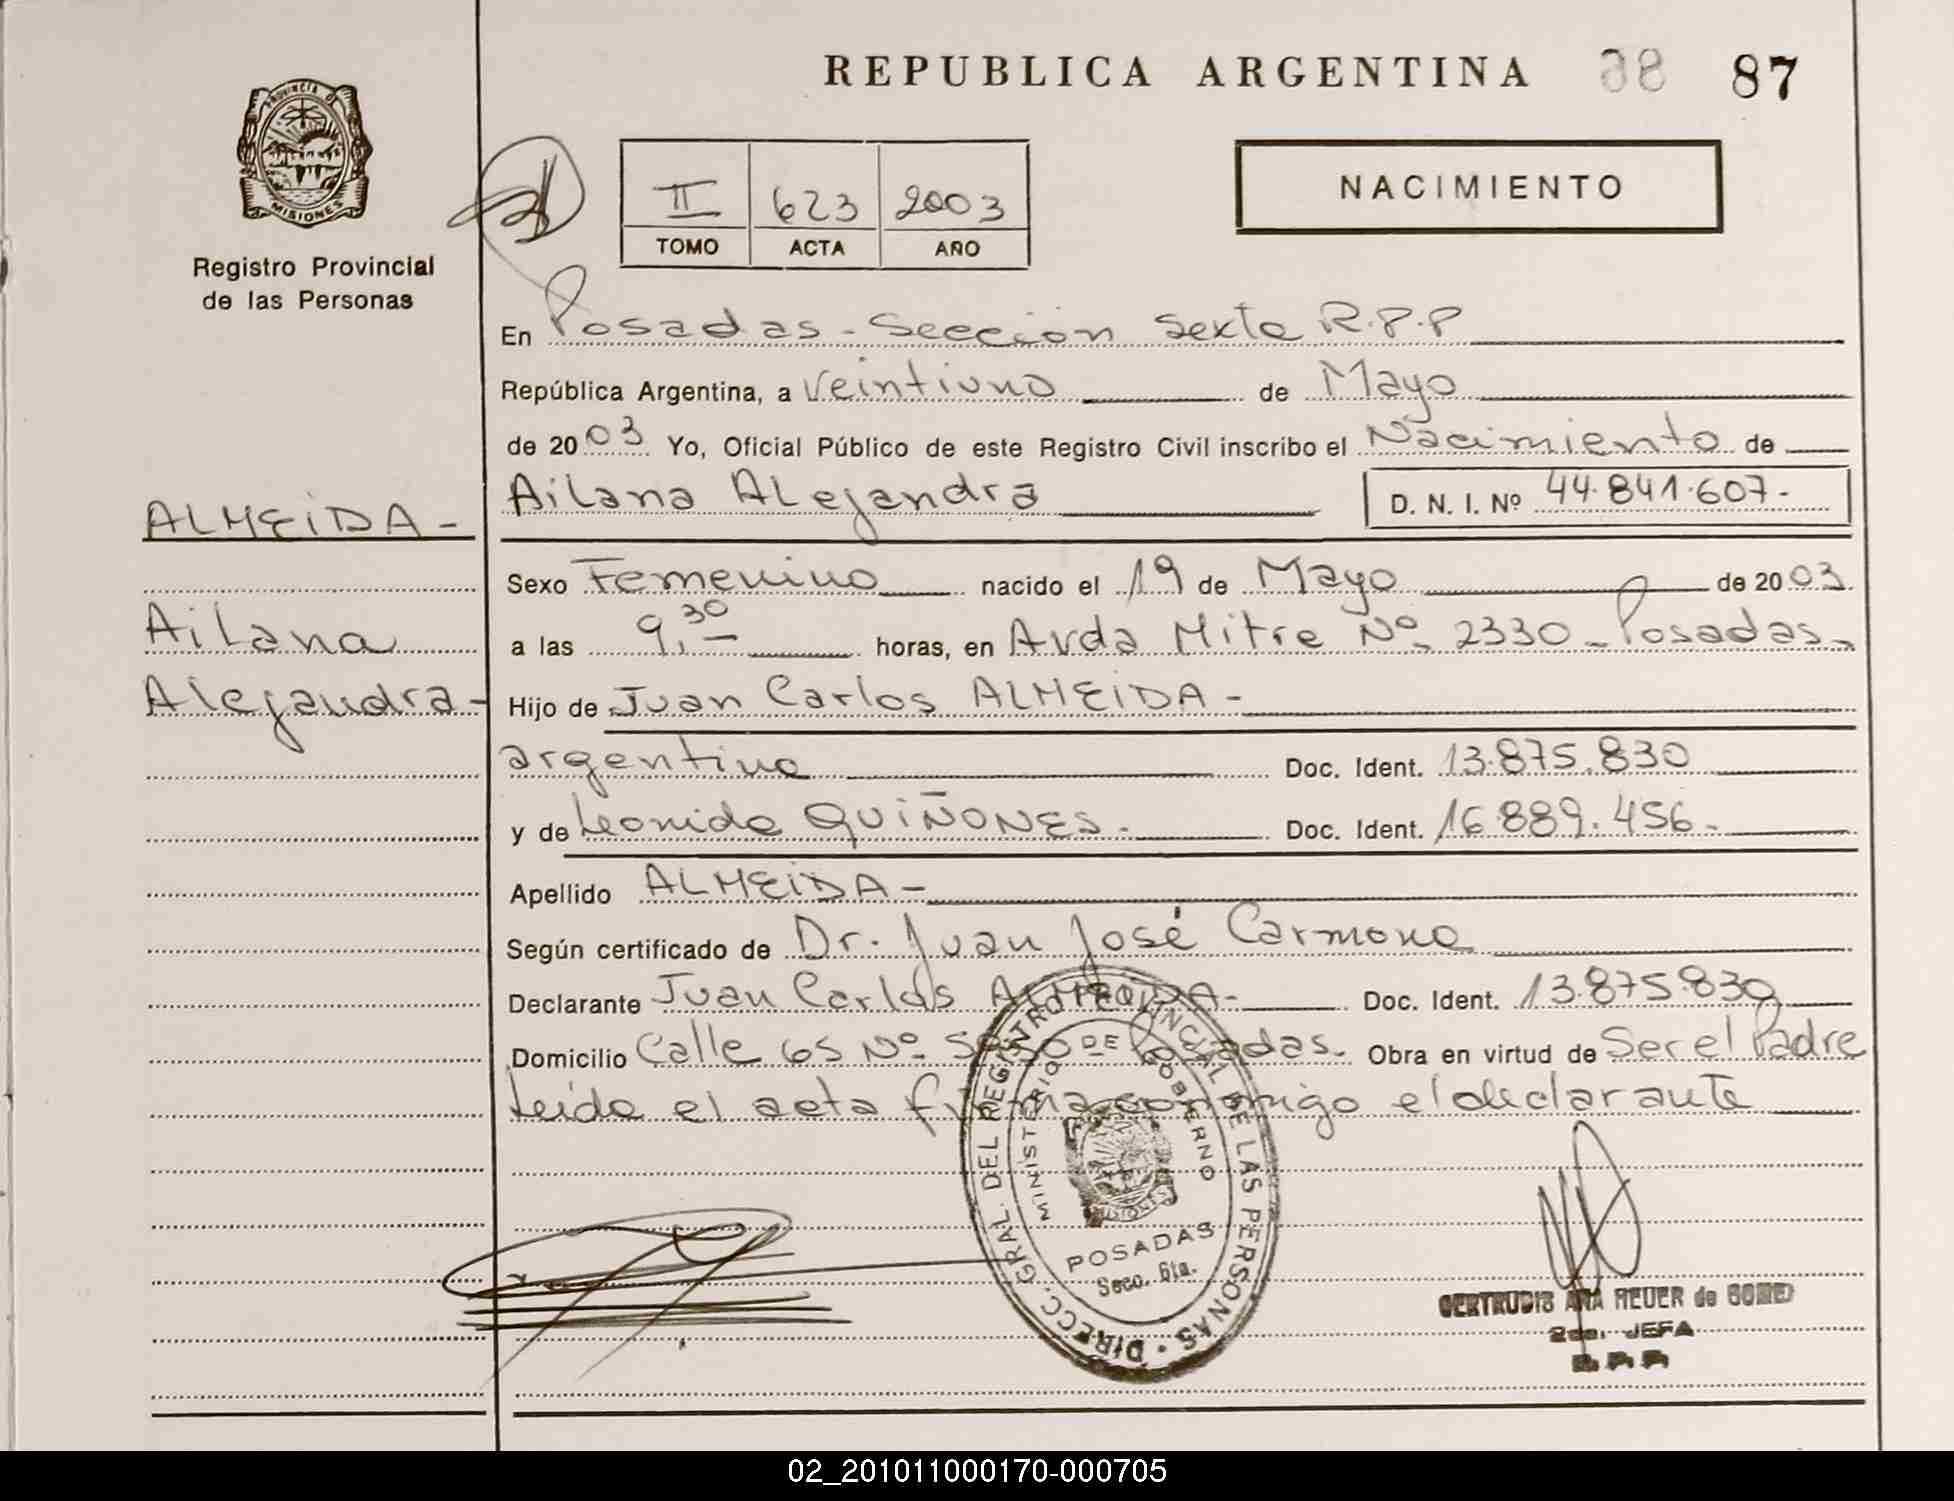 REPUBLICA ARGENTINA 38 87
PROVINCIA DE
MISIONES
Registro Provincial
de las Personas
II 623 2003
TOMO ACTA AÑO
NACIMIENTO
En Posadas - Sección Sexta R.P.P
República Argentina, a Veintiuno de Mayo
de 2003 Yo, Oficial Público de este Registro Civil inscribo el Nacimiento de
Ailana Alejandra D. N. I. Nº 44.841.607-
ALMEIDA-
Ailana
Alejandra-
Sexo Femenino nacido el 19 de Mayo de 2003.
a las 9,30 horas, en Avda Mitre Nº 2330 - Posadas-
Hijo de Juan Carlos ALMEIDA-
argentino Doc. Ident. 13.875.830
y de Leonida QUIÑONES.- Doc. Ident. 16.889.456-
Apellido ALMEIDA-
Según certificado de Dr. Juan José Carmona
Declarante Juan Carlos ALMEIDA- Doc. Ident. 13.875.830
Domicilio Calle 65 Nº Posadas. Obra en virtud de Ser el Padre
Leida el acta firma conmigo el declarante
DIRECC. GRAL. DEL REGISTRO PROVINCIAL DE LAS PERSONAS
MINISTERIO DE GOBIERNO
MISIONES
POSADAS
Secc. 6ta.
GERTRUDIS ANA REUER de
2da. JEFA
R.P.P.
02_201011000170-000705